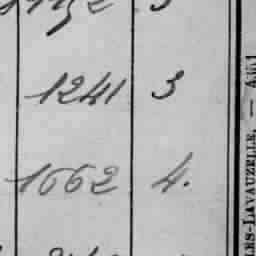 1241 3
1662 4.
LES-LAVAUZELLE. —